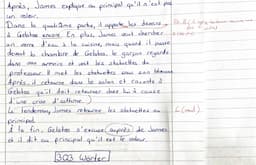 Après, James explique au principal qu'il n'est pas
un voleur.
Dans la quatrième partie, il apporte les dessins
à Gelatos encore. En plus, James veut chercher
un verre d'eau à la cuisine, mais quand il passe
devant la chambre de Gelatos, le garçon regarde
dans son armoire et voit les statuettes du
professeur. Il met les statuettes dans son
Après, il retourne dans le salon et raconte à
Gelatos qu'il doit retourner chez lui à cause
d'une crise d'asthme.)
(Le lendemain, James retourne les statuettes au
principal.
À la fin, Gelatos s'excuse (auprès) de James
et il dit au principal qu'il est le voleur.
303 Wörter